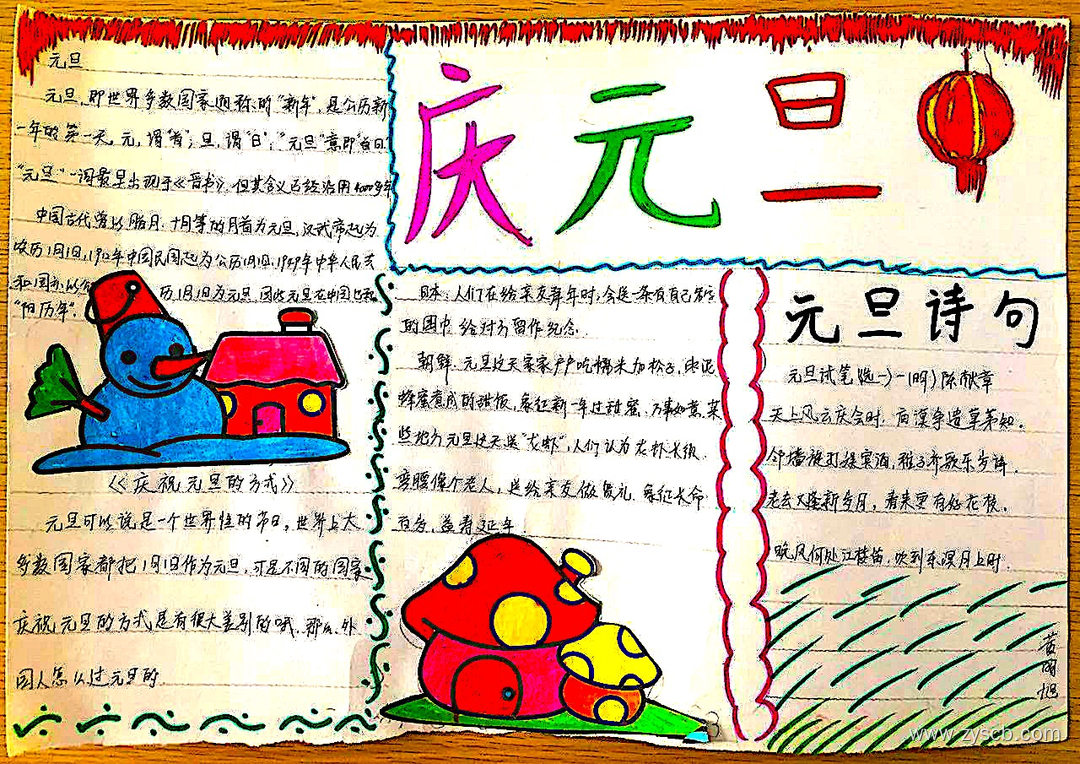 庆元旦
元旦
元旦，即世界多数国家通称的“新年”，是公历新
一年的第一天。元，谓“首”；旦，谓“日”；“元旦”意即“首日”
“元旦”一词最早出现于《晋书》，但其含义已经沿用4000多年
中国古代曾以腊月、十月等的月首为元旦，汉武帝起为
农历1月1日，1912年中国民国起为公历1月1日，1949年中华人民共
和国亦以公历1月1日为元旦，因此元旦在中国也
“阳历年”。
《庆祝元旦的方式》
元旦可以说是一个世界性的节日，世界上大
多数国家都把1月1日作为元旦，可是不同的国家
庆祝元旦的方式是有很大差别的哦，那么外
国人怎么过元旦的
日本：人们在给亲友拜年时，会送一条有自己名字
的图巾，给对方留作纪念.
朝鲜：元旦这天家家户户吃糯米加松子，
蜂蜜煮成的甜饭，象征新一年过甜蜜，万事如意，某
些地方元旦这天送“龙虾”，人们认为龙虾长须
弯腰像个老人，送给亲友做贺礼，象征长命
百岁、益寿延年
元旦诗句
元旦试笔(选一)-(明)陈献章
天上风云庆会时，庙谟争遣草茅知。
邻墙旋打娱宾酒，稚子齐歌乐岁诗.
老去又逢新岁月，春来更有好花枝。
晚风何处江楼笛，吹到东溟月上时.
www.zyscb.com